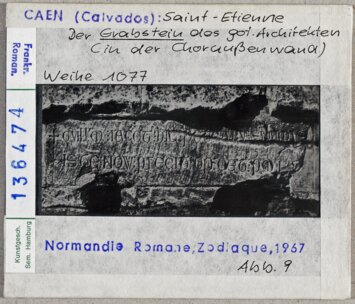 CAEN (Calvados): Saint-Etienne
Der Grabstein des got. Architekten
(in der Choraußenwand)
Weihe 1077
Frankr.
Roman.
136474
Kunstgesch.
Sem. Hamburg
Normandie Romane, Zodiaque, 1967
Abb. 9